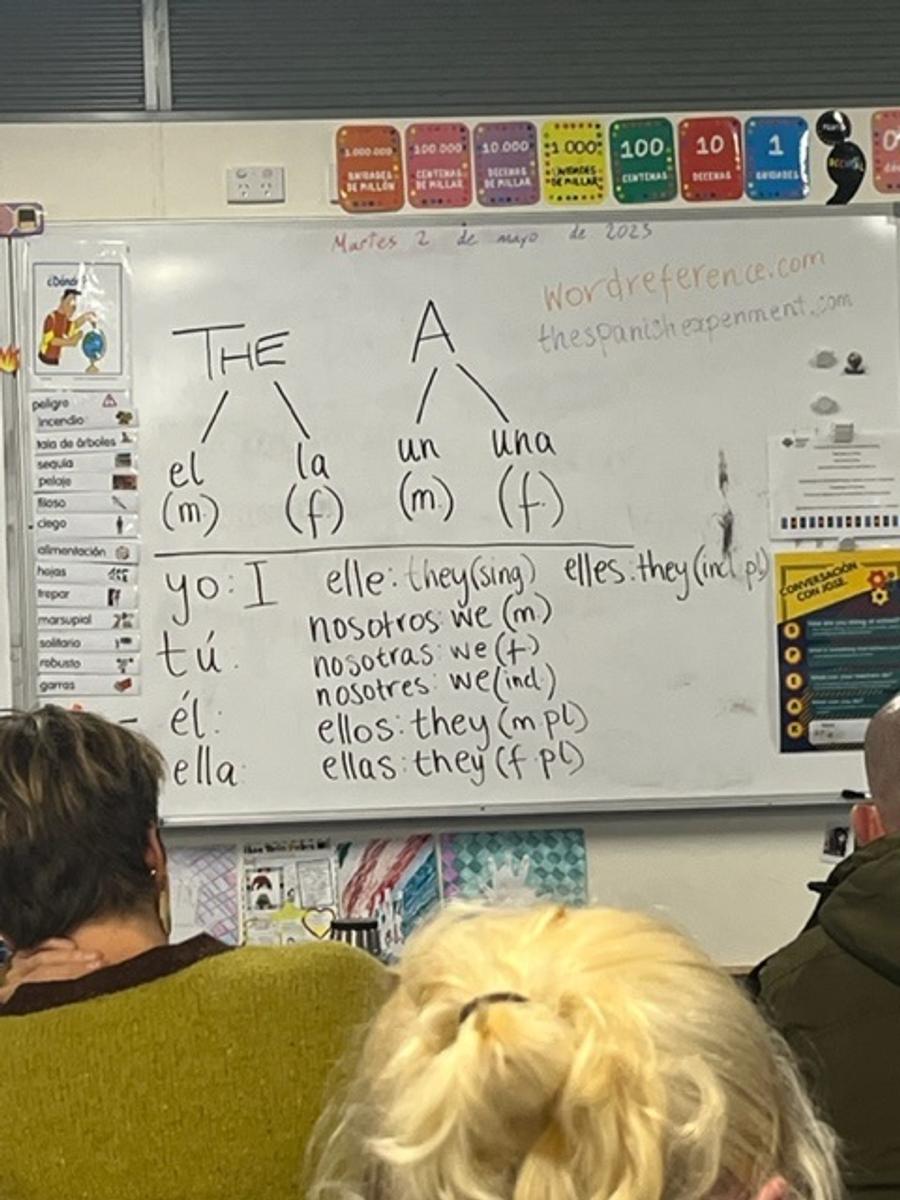 1.000.000
UNIDADES
DE MILLÓN
100.000
CENTENAS
DE MILLAR
10.000
DECENAS
DE MILLAR
1.000
UNIDADES
DE MILLAR
100
CENTENAS
10
DECENAS
1
UNIDADES
Martes 2 de mayo de 2023
wordreference.com
thespanishexperiment.com
THE A
el la un una
(m.) (f.) (m.) (f.)
yo: I elle: they (sing) elles: they (incl pl)
tú: nosotros: we (m.)
nosotras: we (f.)
nosotres: we (incl)
él: ellos: they (m pl)
ella: ellas: they (f. pl)
¿Dónde?
peligro
incendio
tala de árboles
sequía
pelaje
filoso
ciego
alimentación
hojas
trepar
marsupial
solitario
robusto
garras
CONVERSACIÓN
CON JOSE.
S
P
E
A
K